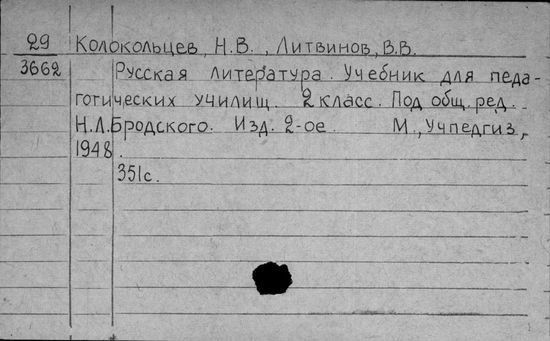 29 Колокольцев, Н.В., Литвинов, В.В.
3662 Русская литература. Учебник для педа-
гогических училищ. 2 класс. Под общ. ред.
Н.Л.Бродского. Изд. 2-ое. М., Учпедгиз,
1948.
351с.